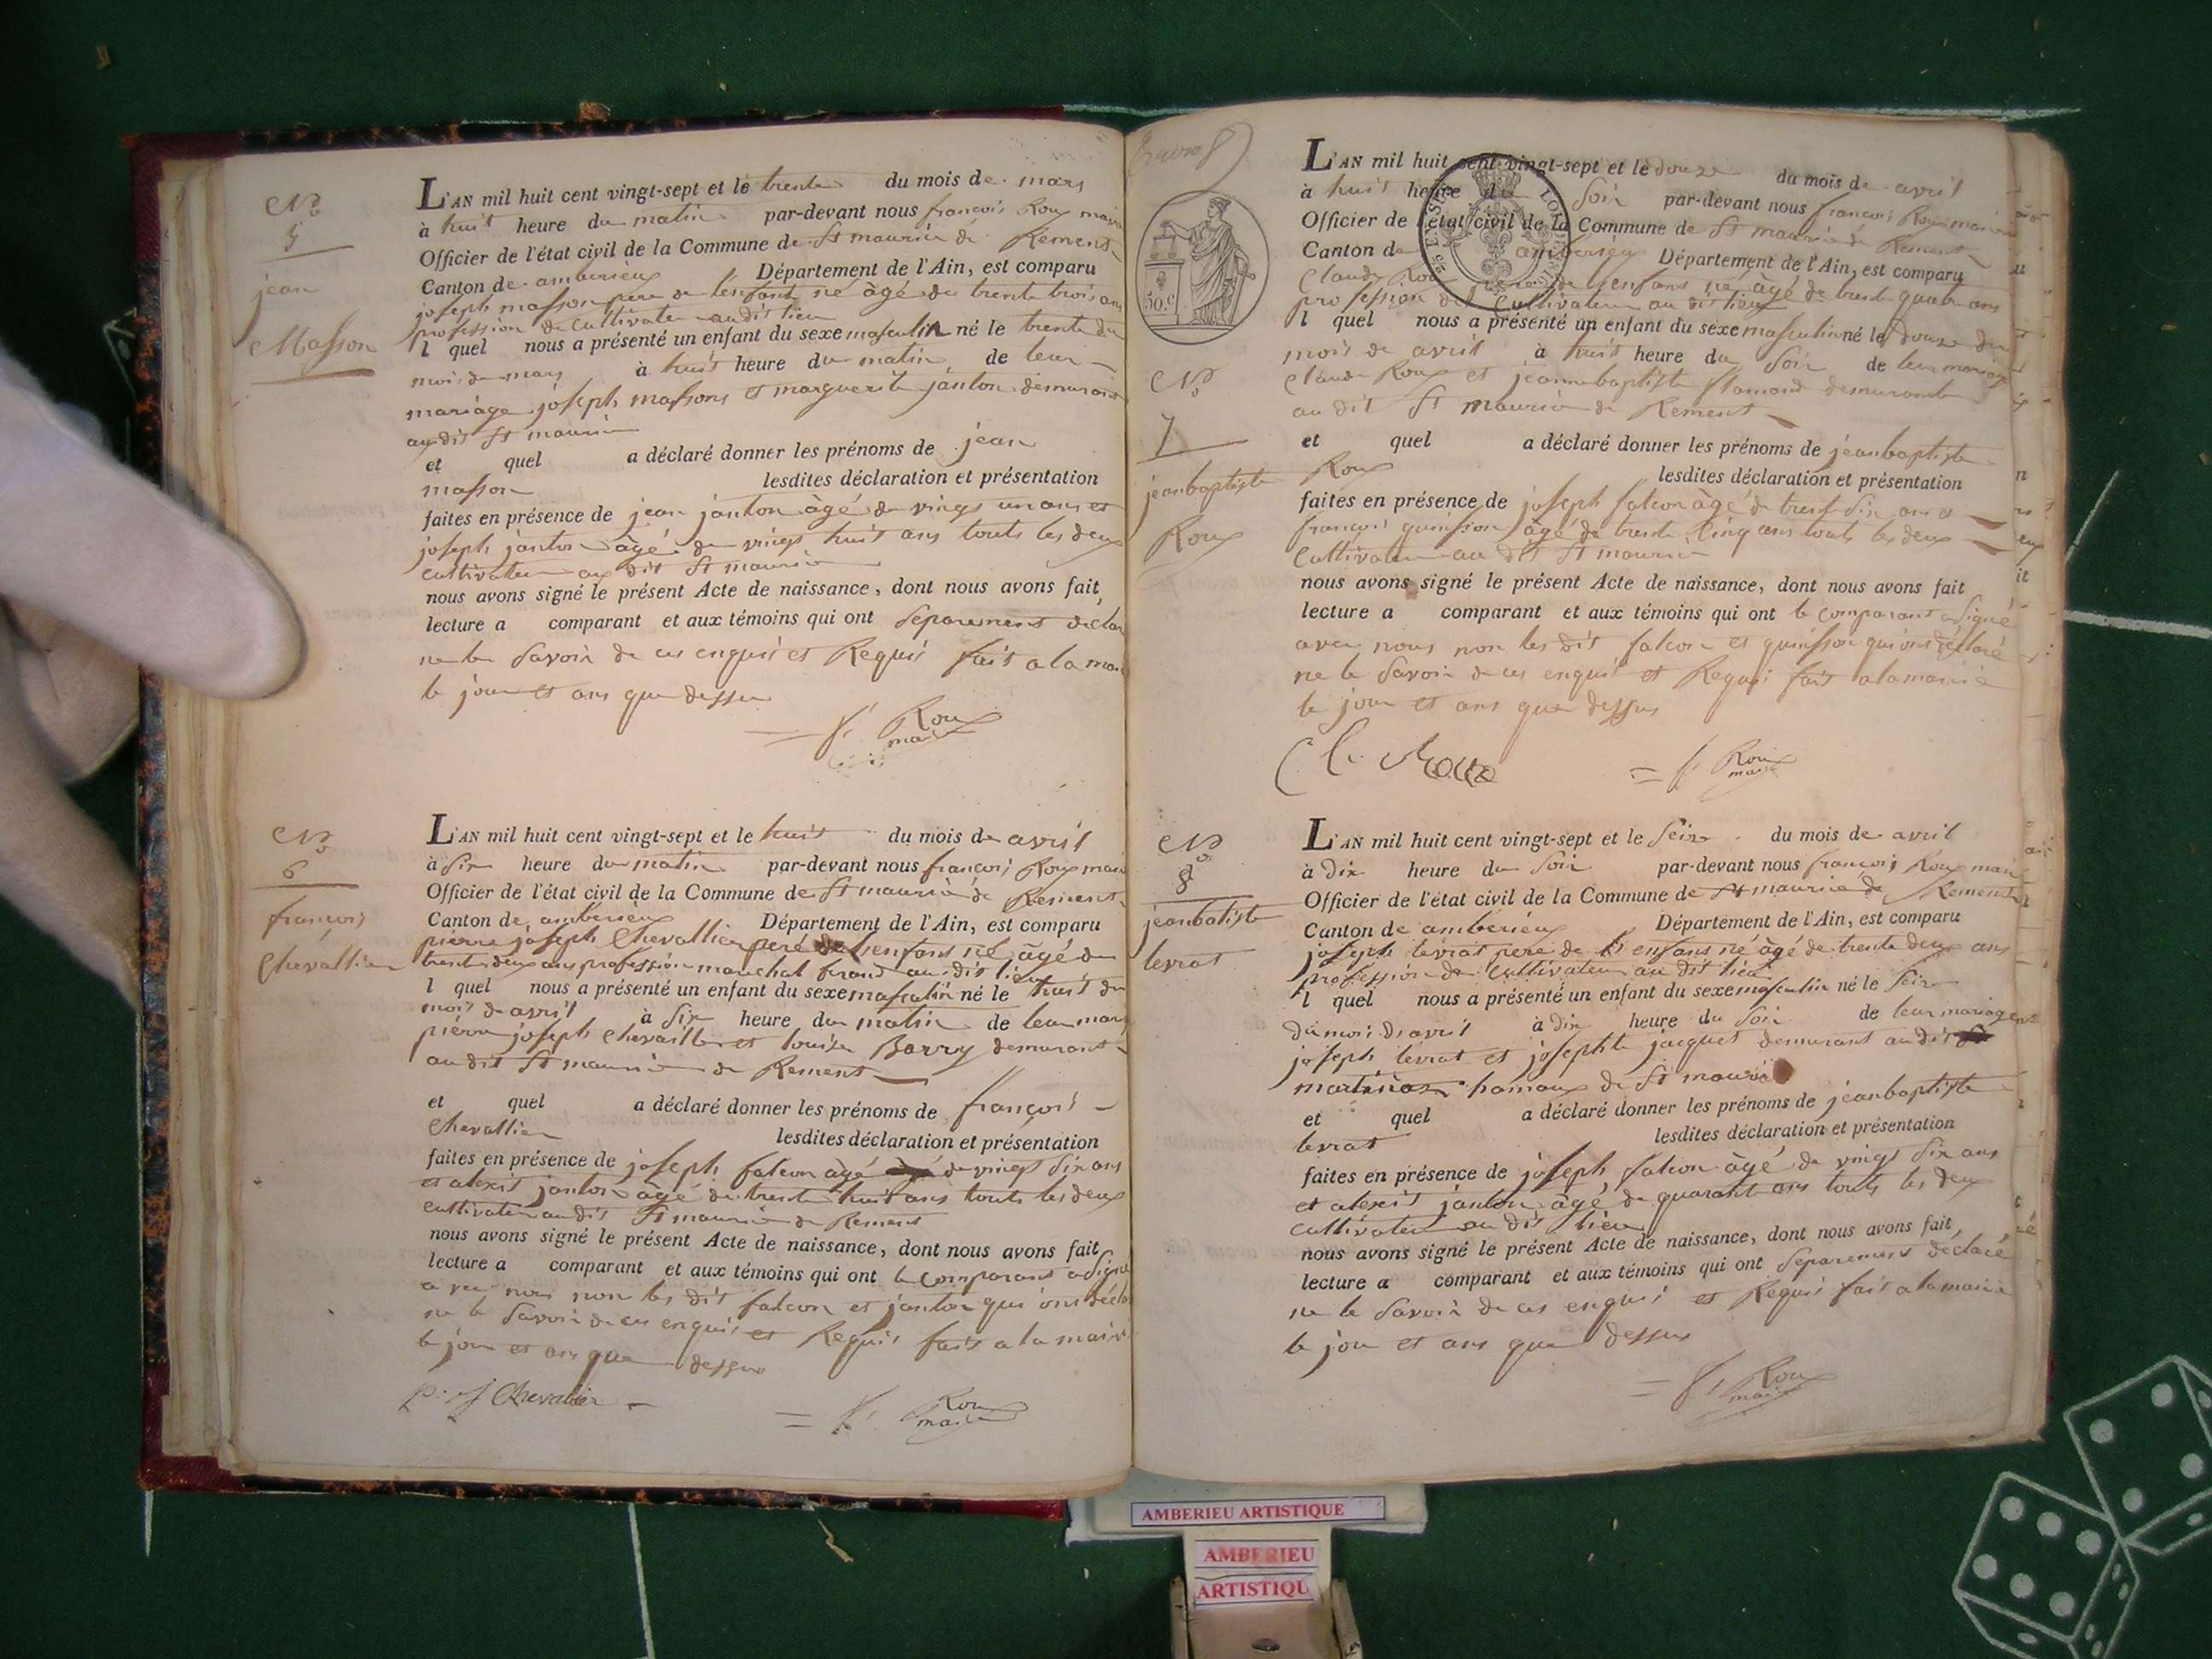 No
5
jean
Masson
L'AN mil huit cent vingt-sept et le trente du mois de mars
à huit heure du matin par-devant nous françois Roux maire
Officier de l'état civil de la Commune de St maurice de Rement
Canton de amberieux Département de l'Ain, est comparu
joseph masson pere de lenfant né âgé de trente trois ans
profession de cultivateur au dit lieu
l quel nous a présenté un enfant du sexe masculin né le trente du
mois de mars à huit heure du matin de leur
mariage joseph massons et marguerite janton demurant
au dit St maurice
et quel a déclaré donner les prénoms de jean
masson lesdites déclaration et présentation
faites en présence de jean janton âgé de vingt un ans et
joseph janton âgé de vingt huit ans touts les deux
cultivateur au dit St maurice
nous avons signé le présent Acte de naissance, dont nous avons fait
lecture a comparant et aux témoins qui ont separement declar
ne le savoir de ces enquis et Requis fait a la mai
le jour et ans que dessus
f. Roux
maire
No
6
françois
Chevallier
L'AN mil huit cent vingt-sept et le huit du mois de avril
à six heure du matin par-devant nous françois Roux maire
Officier de l'état civil de la Commune de St maurice de Rement
Canton de amberieux Département de l'Ain, est comparu
pierre joseph Chevallier peré de lenfans né âgé de
trente deux ans profession marechal ferand au dit lieu
l quel nous a présenté un enfant du sexe masculin né le huit du
mois de avril à six heure du matin de leur mary
pierre joseph Chevallier et louise Barry demurant
au dit St maurice de Rement
et quel a déclaré donner les prénoms de françois
Chevallier lesdites déclaration et présentation
faites en présence de joseph falcon âgé de vingt six ans
et alexit janton âgé de trente huit ans touts les deux
cultivateur au dit St maurice de Rement
nous avons signé le présent Acte de naissance, dont nous avons fait
lecture a comparant et aux témoins qui ont le comparant a signé
avec nous non les dit falcon et janton qui ont déclar
ne le savoir de ces enquis et Requis fait a la mair
le jour et ans que dessus
p. j Chevalier
f. Roux
maire
50.c
No
7
jeanbaptiste
Roux
L'AN mil huit cent vingt-sept et le douze du mois de avril
à huit heure du soir par-devant nous françois Roux maire
Officier de l'état civil de la Commune de St maurice de Rement
Canton de amberieux Département de l'Ain, est comparu
Claude Roux pere de lenfans né âgé de trente quatr ans
profession de Cultivateur au dit lieu
l quel nous a présenté un enfant du sexe masculin né le douze du
mois de avril à huit heure du soir de leur mariage
Claude Roux et jeannebaptiste flamand demurants
au dit St maurice de Rement
et quel a déclaré donner les prénoms de jeanbaptiste
Roux lesdites déclaration et présentation
faites en présence de joseph falcon âgé de trent six ans et
françois âgé de trente cinq ans touts les deux
Cultivateur au dit St maurice
nous avons signé le présent Acte de naissance, dont nous avons fait
lecture a comparant et aux témoins qui ont le comparant a signé
avec nous non les dit falcon et qui ont déclaré
ne le savoir de ces enquis et Requis fait a la mairie
le jour et ans que dessus
Cl. Roux
f. Roux
maire
No
8
jeanbatiste
levrat
L'AN mil huit cent vingt-sept et le seize du mois de avril
à dix heure du soir par-devant nous françois Roux maire
Officier de l'état civil de la Commune de St maurice de Rement
Canton de amberieux Département de l'Ain, est comparu
joseph levrat pere de l'enfans né âgé de trente deux ans
profession de Cultivateur au dit lieu
l quel nous a présenté un enfant du sexe masculin né le seize
du mois d'avril à dix heure du soir de leur mariage
joseph levrat et josephte jacquet demurant au dit
martinas hamaux de St mauri
et quel a déclaré donner les prénoms de jeanbaptiste
levrat lesdites déclaration et présentation
faites en présence de joseph falcon âgé de vingt six ans
et alexit janton âgé de quarante ans touts les deux
cultivateur au dit lieu
nous avons signé le présent Acte de naissance, dont nous avons fait
lecture a comparant et aux témoins qui ont separement declaré
ne le savoir de ces enquis et Requis fait a la mairie
le jour et ans que dessus
f. Roux
maire
AMBERIEU ARTISTIQUE
AMBERIEU
ARTISTIQU